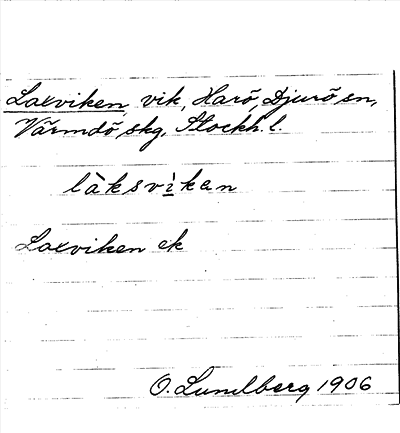 Laxviken, vik, Harö, Djurö sn,
Värmdö skg, Stockh. l.
làksvìkən
Laxviken ek
O. Lundberg 1906